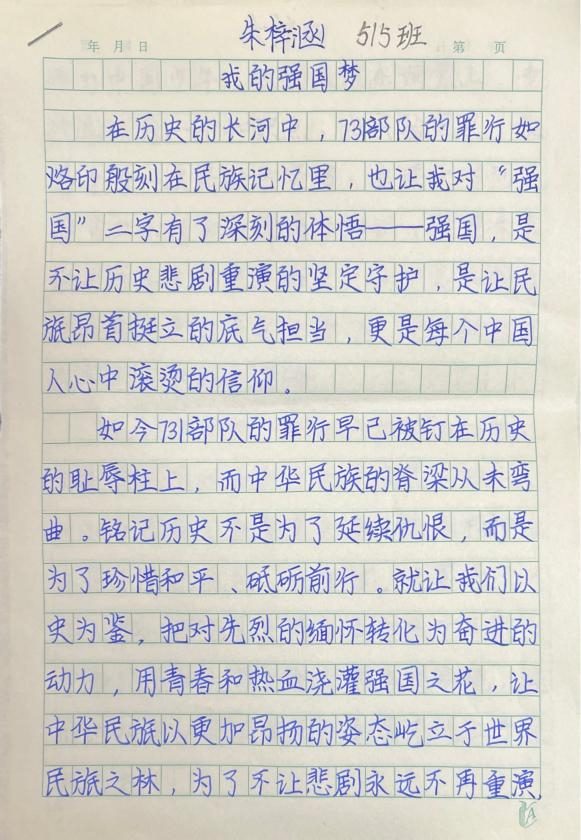 朱梓涵 515班
年 月 日 第 页
我的强国梦
在历史的长河中，731部队的罪行如
烙印般刻在民族记忆里，也让我对“强
国”二字有了深刻的体悟——强国，是
不让历史悲剧重演的坚定守护，是让民
族昂首挺立的底气担当，更是每个中国
人心中滚烫的信仰。
如今731部队的罪行早已被钉在历史
的耻辱柱上，而中华民族的脊梁从未弯
曲。铭记历史不是为了延续仇恨，而是
为了珍惜和平、砥砺前行。就让我们以
史为鉴，把对先烈的缅怀转化为奋进的
动力，用青春和热血浇灌强国之花，让
中华民族以更加昂扬的姿态屹立于世界
民族之林，为了不让悲剧永远不再重演，